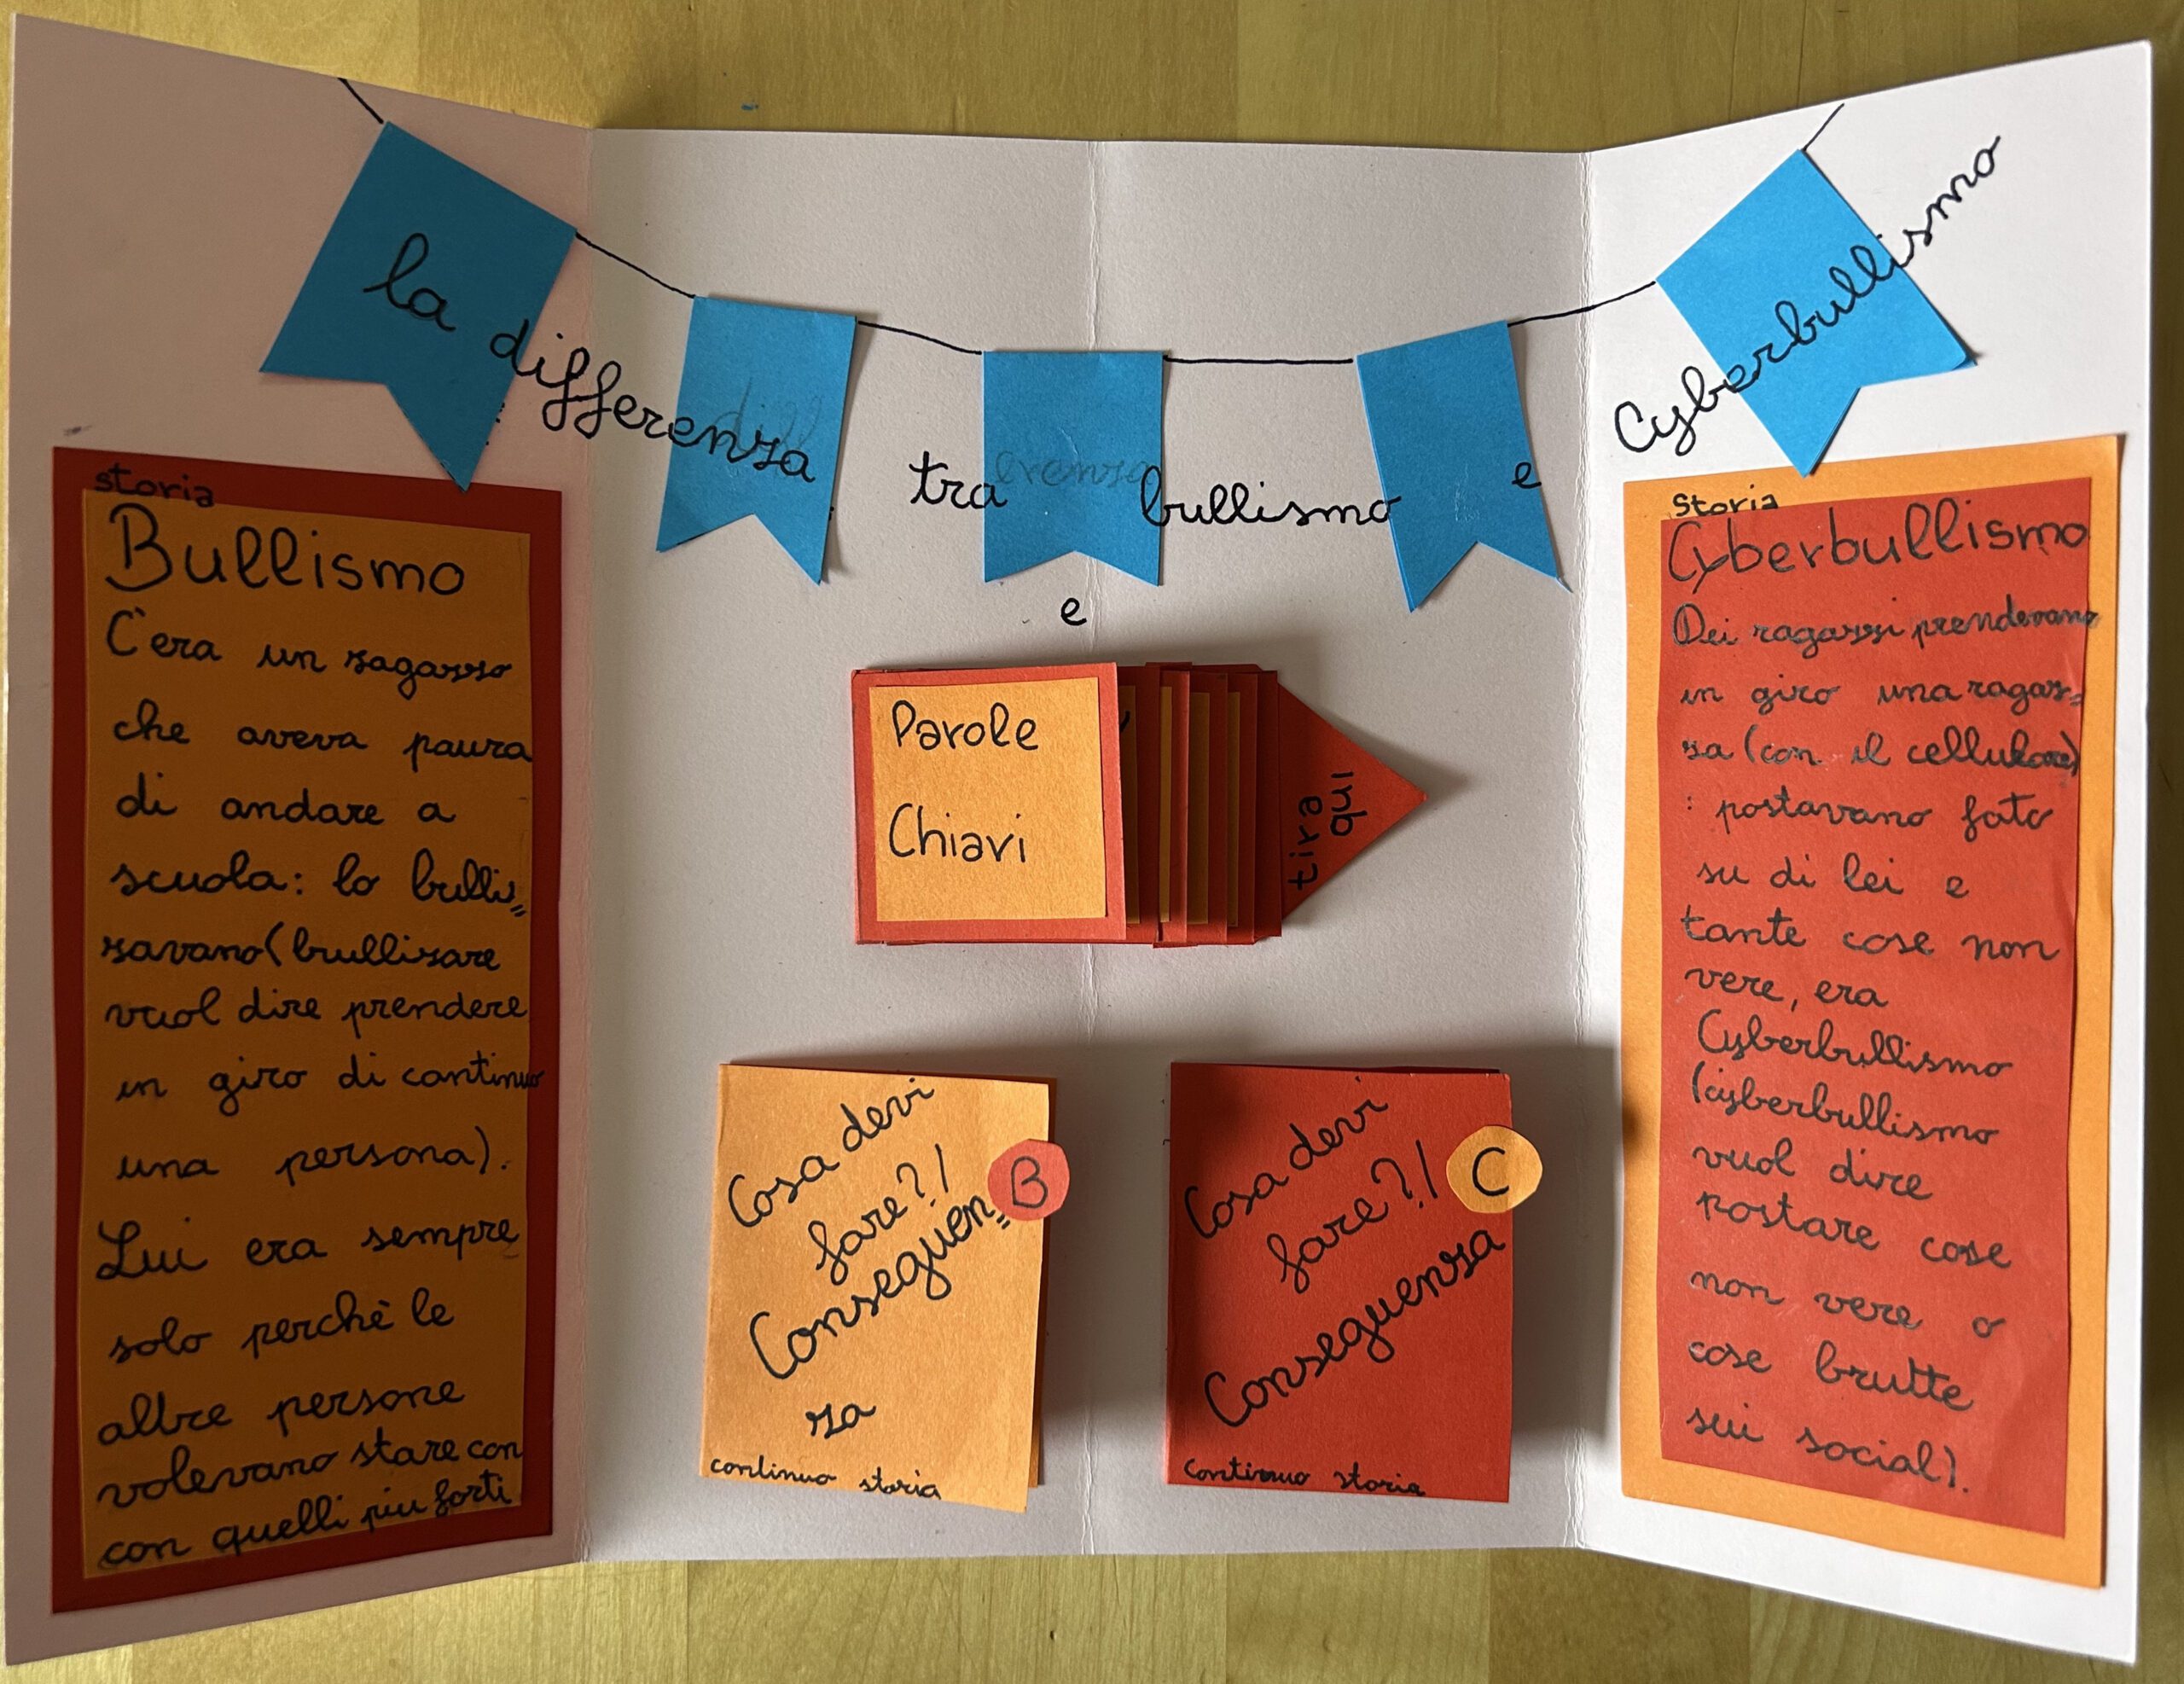 la differenza tra bullismo e Cyberbullismo
e
storia
Bullismo
C'era un ragazzo
che aveva paura
di andare a
scuola: lo bulli=
zavano (brullizare
vuol dire prendere
in giro di continuo
una persona).
Lui era sempre
solo perchè le
altre persone
volevano stare con
con quelli piu forti
Parole
Chiavi
tira
qui
Cosa devi
fare?/
Conseguen=
za
B
continuo storia
Cosa devi
fare?/
Conseguenza
C
continuo storia
Storia
Cyberbullismo
Dei ragazzi prendevano
in giro una ragaz=
za (con il cellulare)
: postavano foto
su di lei e
tante cose non
vere, era
Cyberbullismo
(cyberbullismo
vuol dire
postare cose
non vere o
cose brutte
sui social).